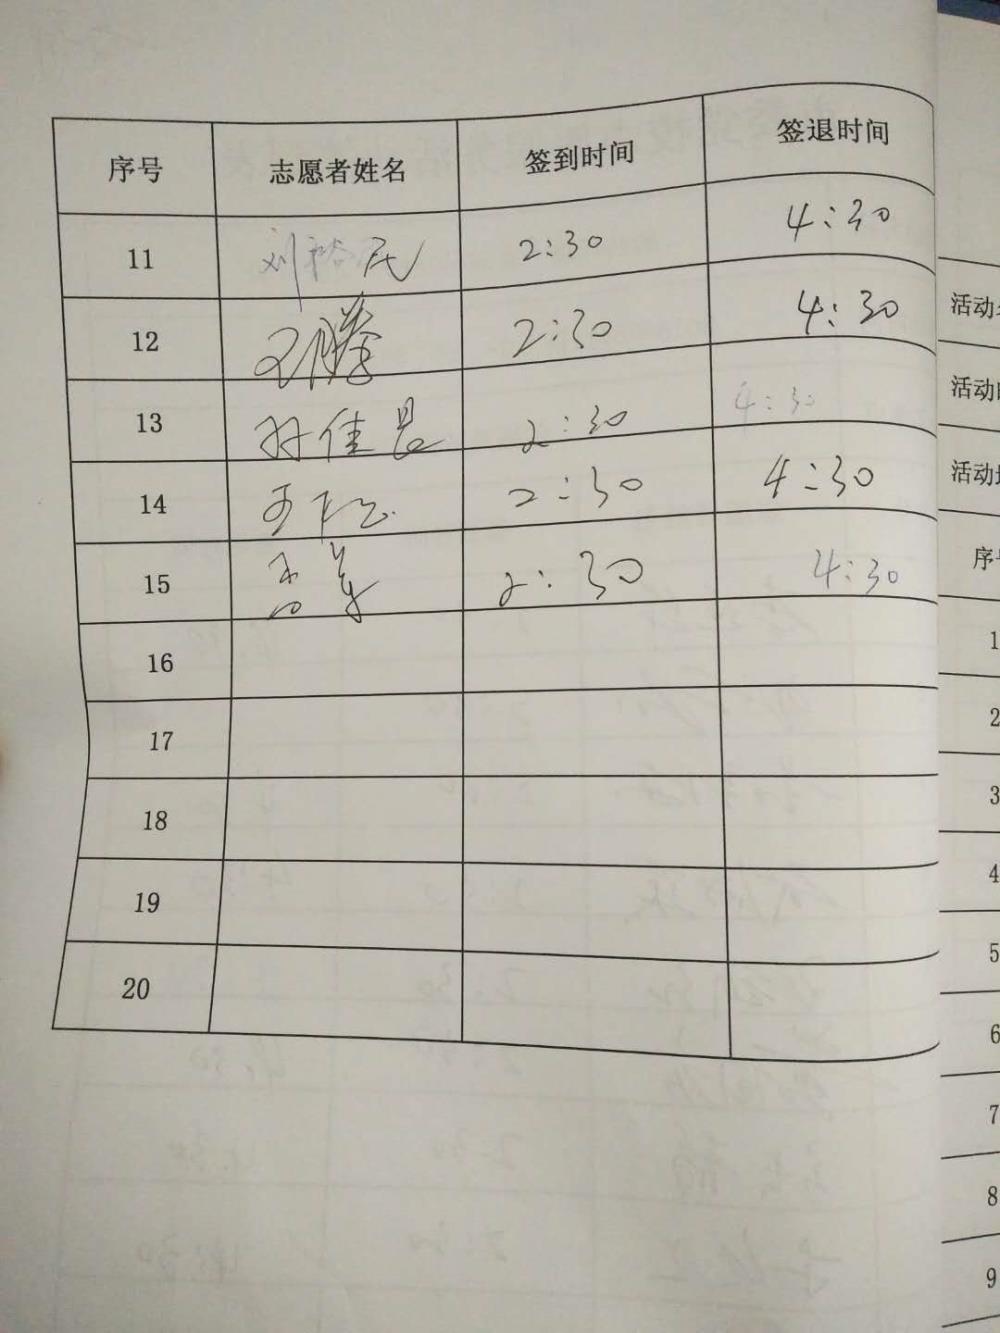 序号 志愿者姓名 签到时间 签退时间
11 刘裕民 2:30 4:30
12 王腾 2:30 4:30
13 佳 2:30 4:30
14 2:30 4:30
15 2:30 4:30
16
17
18
19
20
活动
活动
活动
序
1
2
3
4
5
6
7
8
9